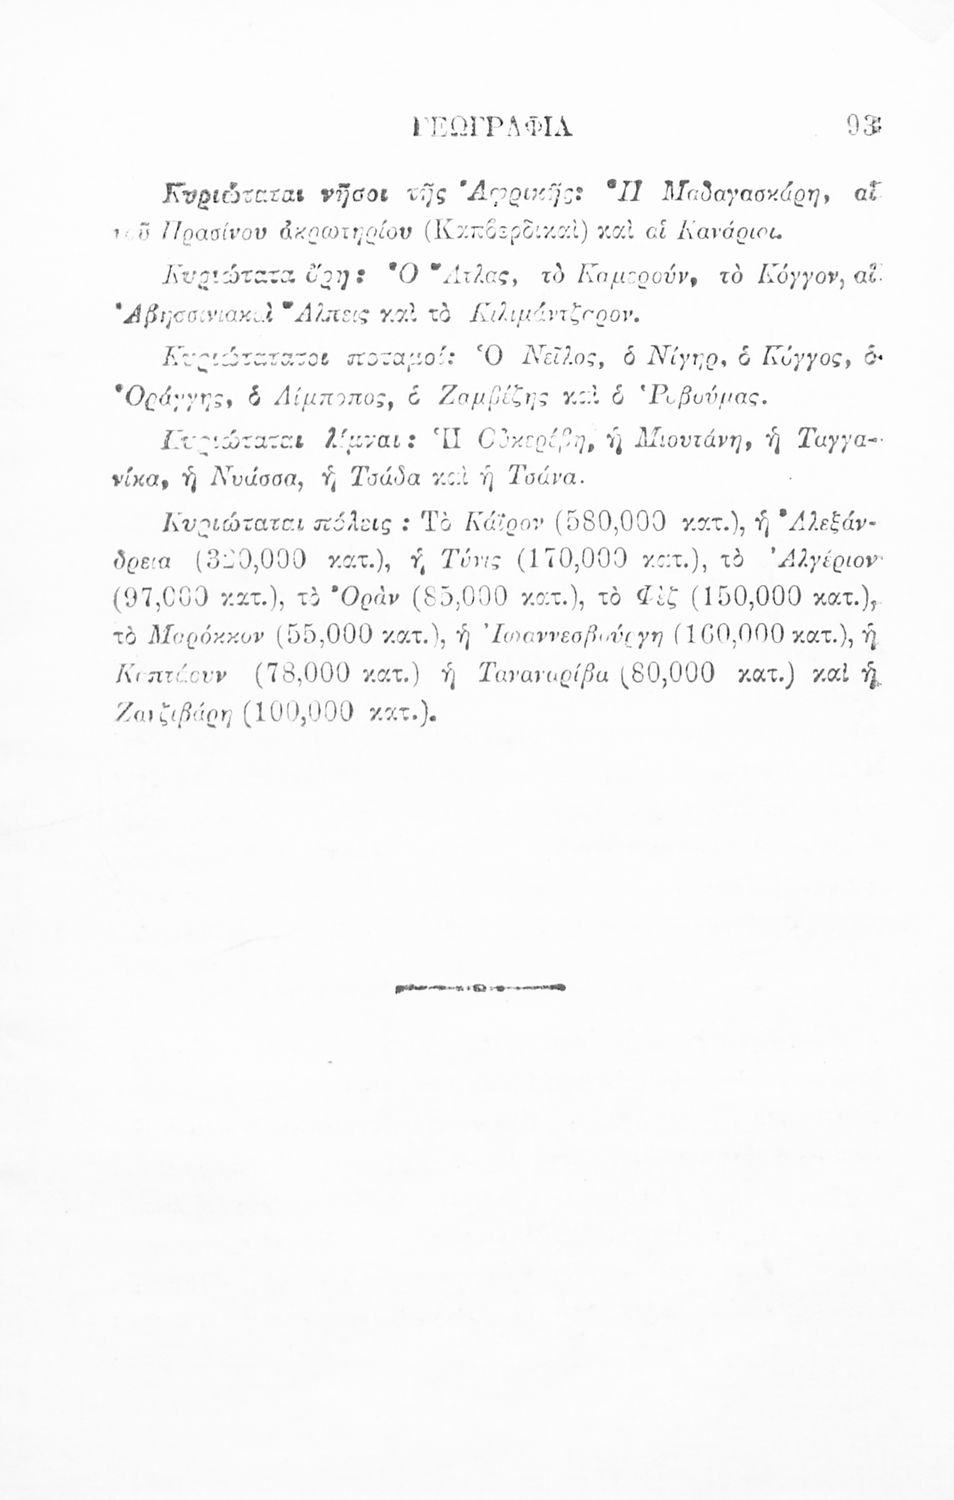 ΓΕΩΓΡΑΦΙΑ 93
Κυριώταται νῆσοι τῆς Ἀφρικῆς: Ἡ Μαδαγασκάρη, αἱ
τοῦ Πρασίνου ἀκρωτηρίου (Καποβερδικαὶ) καὶ αἱ Κανάριοι.
Κυριώτατα ὄρη: Ὁ Ἄτλας, τὸ Καμερούν, τὸ Κόγγον, αἱ
Ἀβησσινιακαὶ Ἄλπεις καὶ τὸ Κιλιμάντζαρον.
Κυριώτατατοι ποταμοί: Ὁ Νεῖλος, ὁ Νίγηρ, ὁ Κόγγος, ὁ
Ὀράγγης, ὁ Λίμποπος, ὁ Ζαμβέζης καὶ ὁ Ῥοβούμας.
Κυριώταται λίμναι: Ἡ Οὐκερέβη, ἡ Μιουτάνη, ἡ Ταγγα-
νίκα, ἡ Νυάσσα, ἡ Τσάδα καὶ ἡ Τσάνα.
Κυριώταται πόλεις: Τὸ Κάϊρον (580,000 κατ.), ἡ Ἀλεξάν-
δρεια (320,000 κατ.), ἡ Τύνις (170,000 κατ.), τὸ Ἀλγέριον
(97,000 κατ.), τὸ Ὀρὰν (85,000 κατ.), τὸ Φὲζ (150,000 κατ.),
τὸ Μαρόκκον (55,000 κατ.), ἡ Ἰωαννεσβούργη (160,000 κατ.), ἡ
Κεπτάουν (78,000 κατ.) ἡ Ταναναρίβα (80,000 κατ.) καὶ ἡ
Ζανζιβάρη (100,000 κατ.).